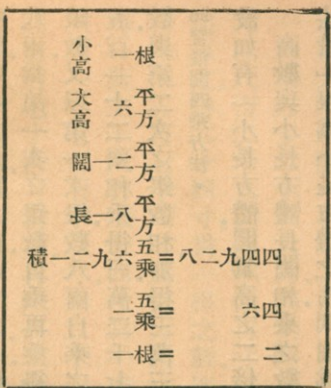 小高 一根
大高 六平方
闊 一二平方
長 一八平方
積 一二九六五乘=八二九四四
一五乘=六四
一根=二